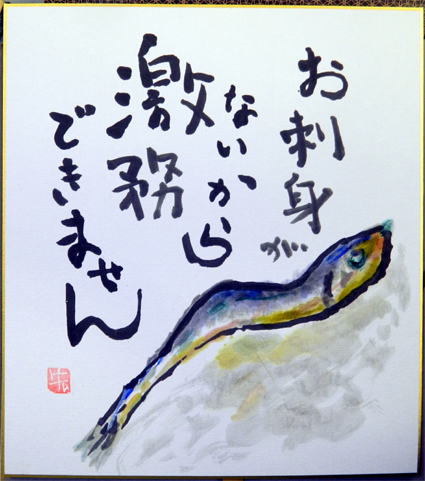 お刺身が
ないから
激務
できません